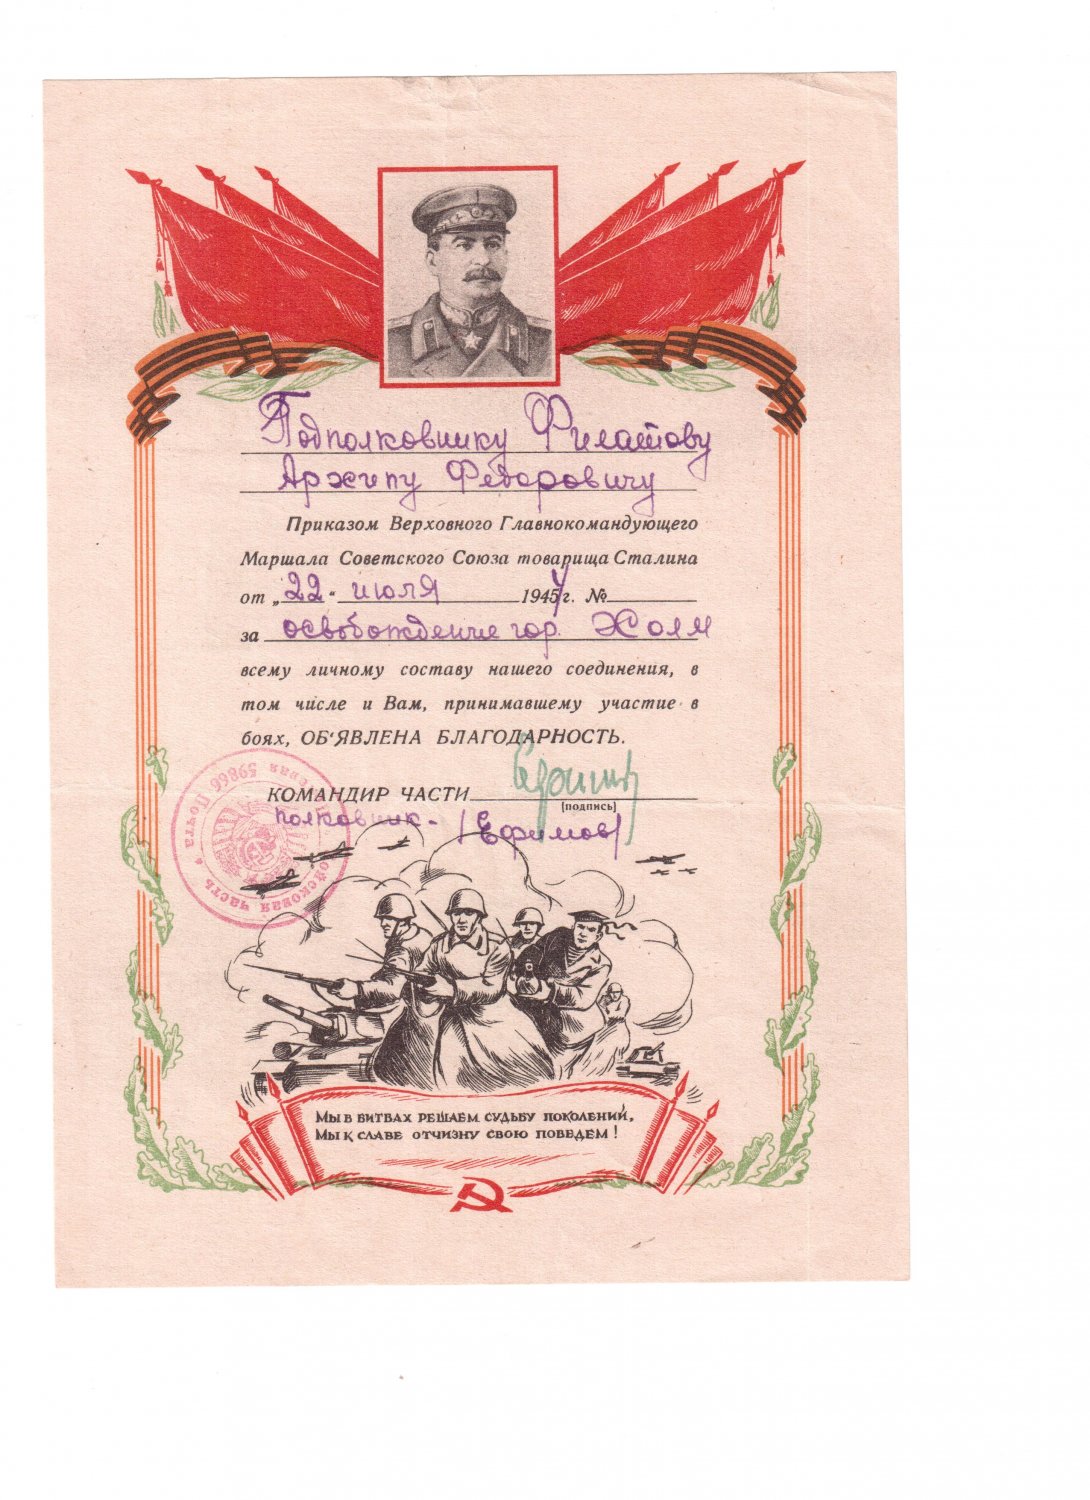 Подполковнику Филатову
Архипу Федоровичу
Приказом Верховного Главнокомандующего
Маршала Советского Союза товарища Сталина
от „22" июля 1944 г. №
за освобождение гор. Холм
всему личному составу нашего соединения, в
том числе и Вам, принимавшему участие в
боях, ОБ'ЯВЛЕНА БЛАГОДАРНОСТЬ.
КОМАНДИР ЧАСТИ
(подпись)
полковник - /Ефимов/
Войсковая часть * Полевая 59866 Почта *
МЫ В БИТВАХ РЕШАЕМ СУДЬБУ ПОКОЛЕНИЙ,
МЫ К СЛАВЕ ОТЧИЗНУ СВОЮ ПОВЕДЕМ!